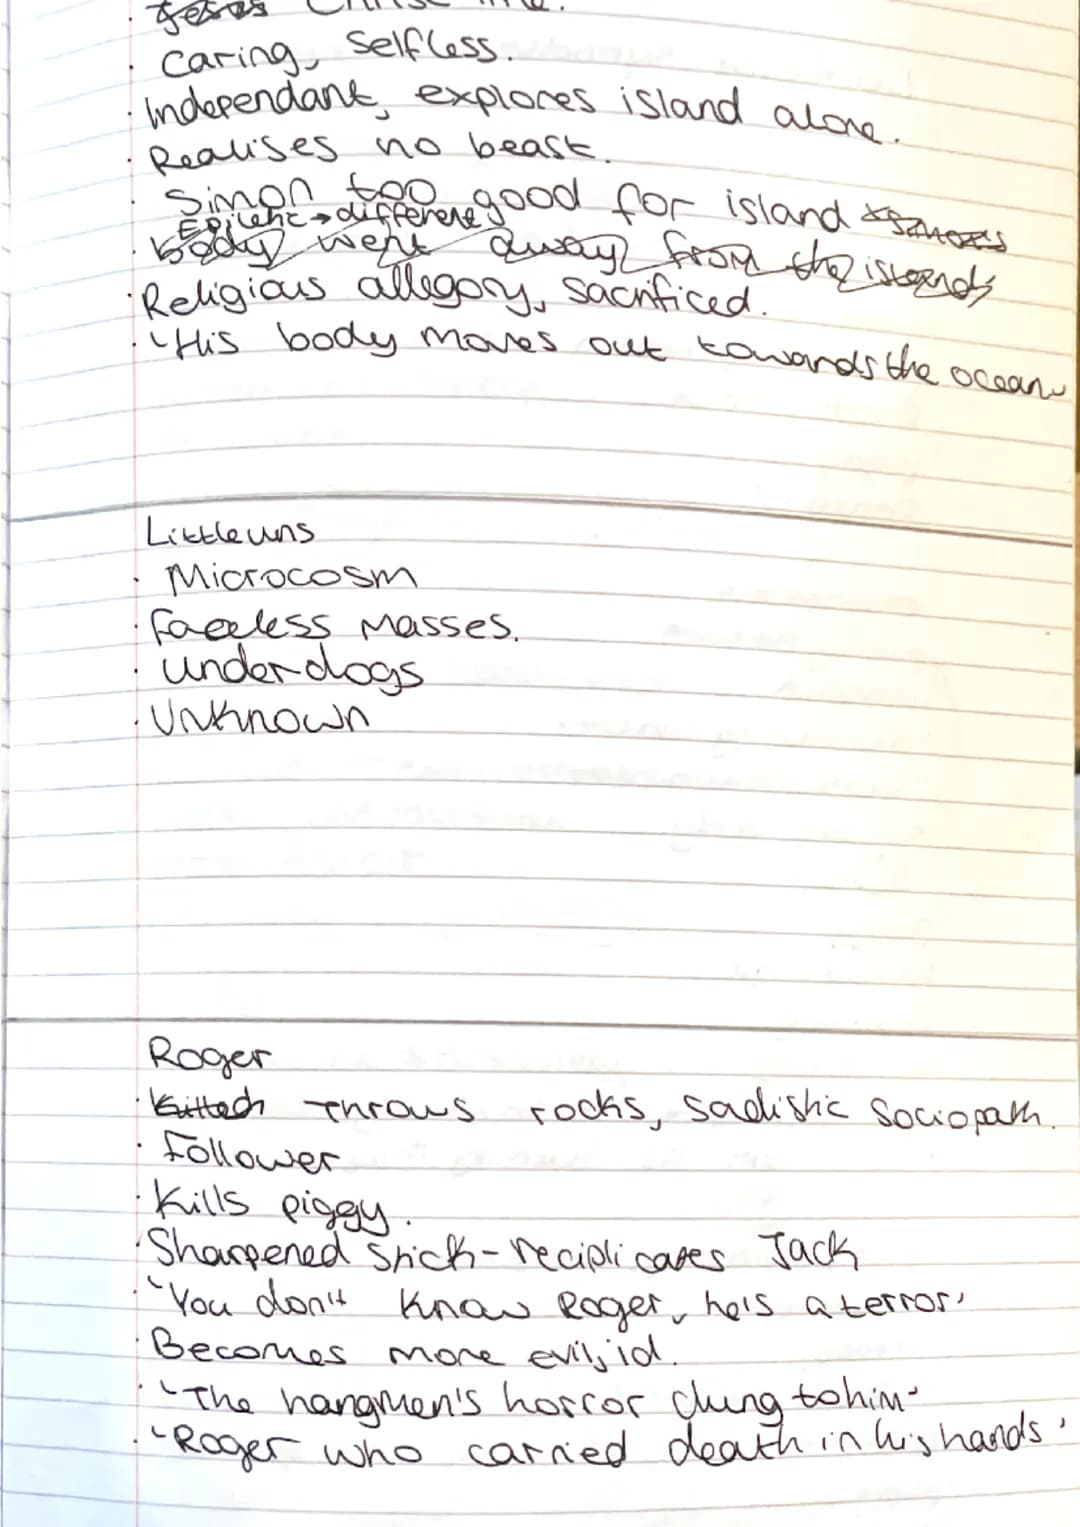 · Jesus Christ
· Caring, Selfless.
· Independant, explores island alone.
· Realises no beast.
Simon too good for island
Epileptic → different
· body went away from the islands
· Religious allegory, sacrificed.
· 'His body moves out towards the ocean
Littleuns
· Microcosm
· Faceless Masses.
· underdogs
· Unknown
Roger
· Killed Throws rocks, sadistic Sociopath.
· Follower
· Kills piggy.
· Sharpened Stick - reciplicates Jack
· 'You don't know Roger, he's a terror'
· Becomes more evil, id.
· 'The hangmen's horror clung to him'
· 'Roger who carried death in his hands'